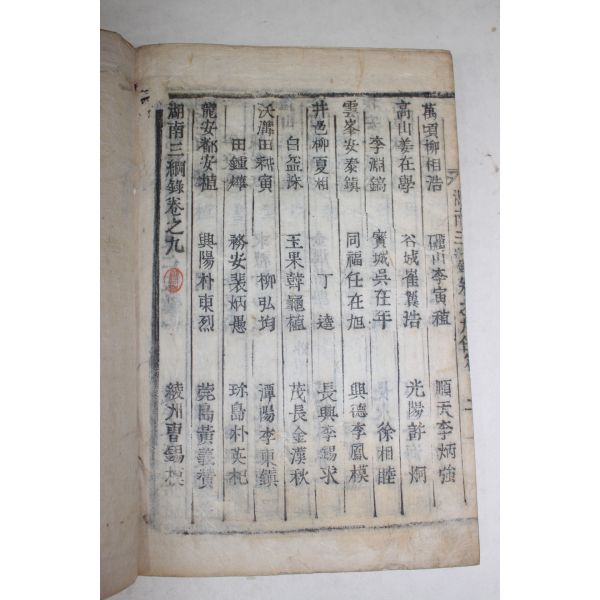 萬頃柳相浩 礪山李寅植 順天李炳強
高山姜在學 谷城崔翼浩 光陽許炯
李淵鎬 寶城吳在年 徐相睦
雲峯安泰鎭 同福任在旭 興德李鳳模
井邑柳夏相 丁逵 長興李錫求
白洙 玉果韓龜植 茂長金漢秋
沃溝田耕寅 柳弘均 潭陽李東鎭
田鍾燁 務安裴炳愚 珍島朴英杞
龍安都安植 興陽朴東烈 莞島黃義贊
湖南三綱錄卷之九 綾州曹錫模